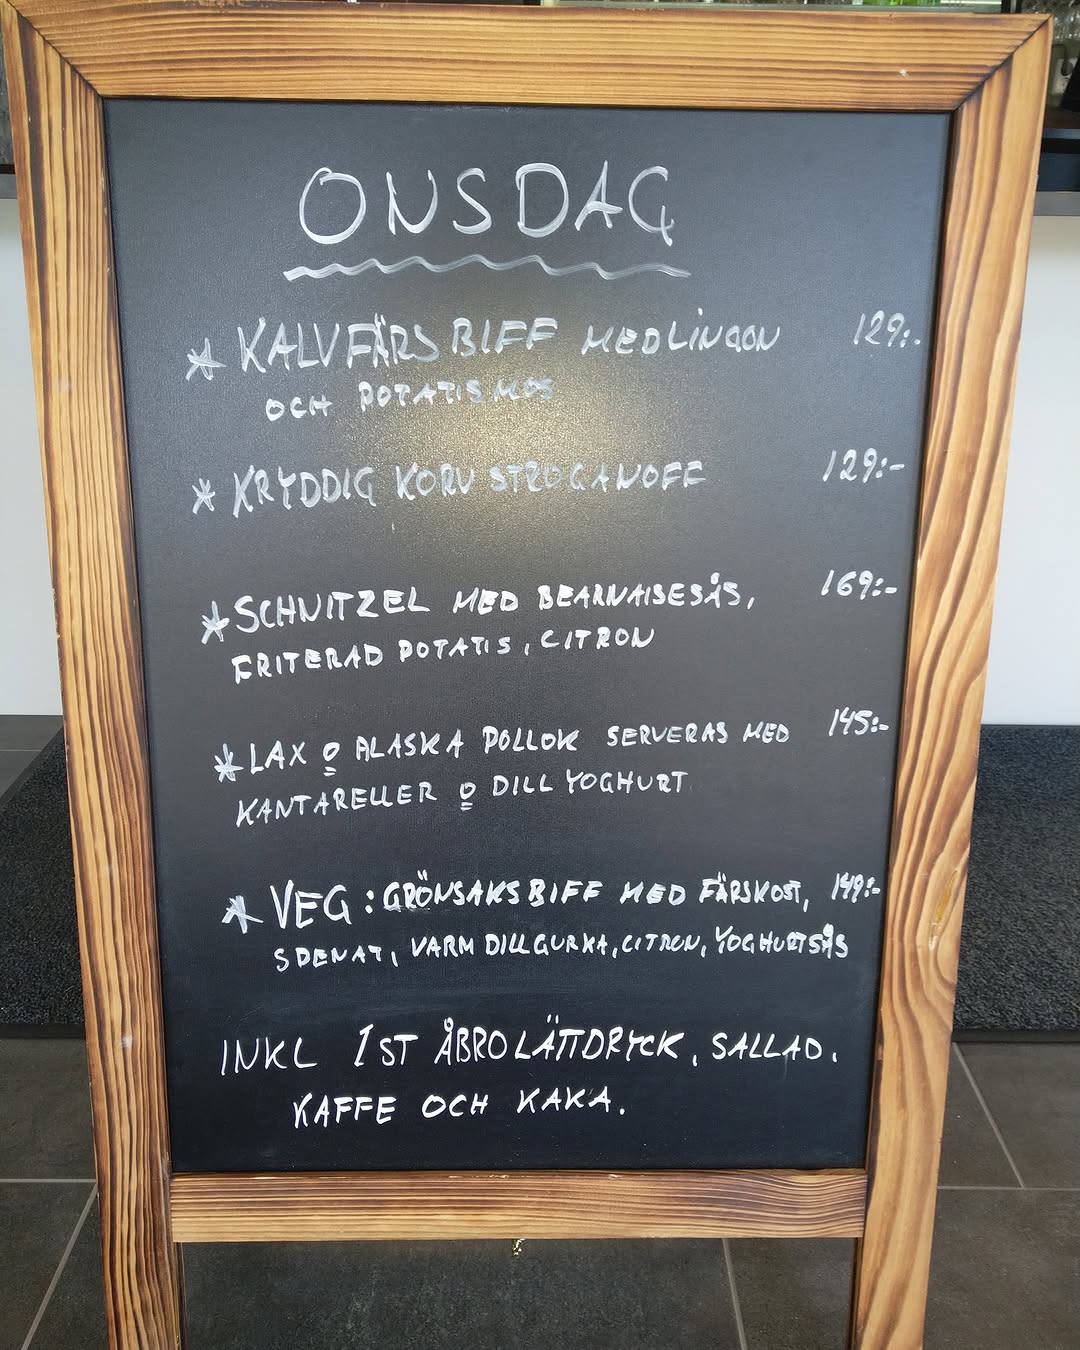 ONSDAG
* KALVFÄRSBIFF MED LINGON 129:-
OCH POTATISMOS
* KRYDDIG KORV STROGANOFF 129:-
* SCHNITZEL MED BEARNAISESÅS, 169:-
FRITERAD POTATIS, CITRON
* LAX o ALASKA POLLOK SERVERAS MED 145:-
KANTARELLER o DILL YOGHURT
* VEG: GRÖNSAKSBIFF MED FÄRSKOST, 149:-
SPENAT, VARM DILLGURKA, CITRON, YOGHURTSÅS
INKL 1ST ÅBRO LÄTTDRYCK, SALLAD.
KAFFE OCH KAKA.